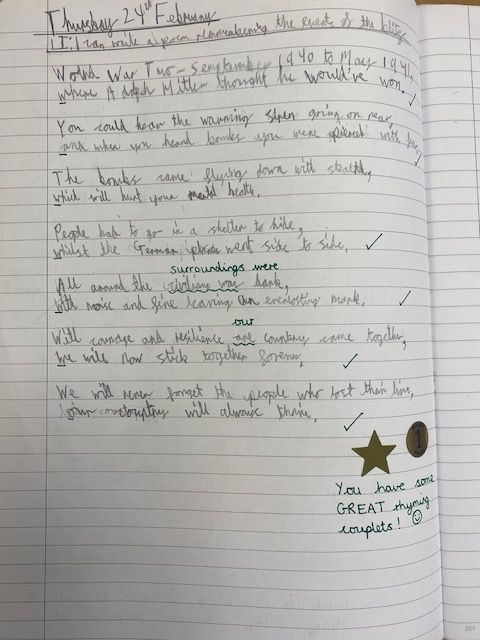 Thursday 24th February
LI: I can write a poem remembering the events of the blitz.
World War Two - September 1940 to May 1941,
where Adolph Hitler thought he would've won.
You could hear the warning siren going on near,
and when you heard bombs you were with fear,
The bombs came flying down with stealth,
which will hurt your mental health,
People had to go in a shelter to hide,
whilst the German planes went side to side,
surroundings were
All around the civilians was dark,
with noise and fire leaving an everlasting mark,
our
With courage and resilience are country came together,
We will now stick together forever,
We will never forget the people who lost their live,
our country will always thrive,
1
You have some
GREAT rhyming
couplets!
201